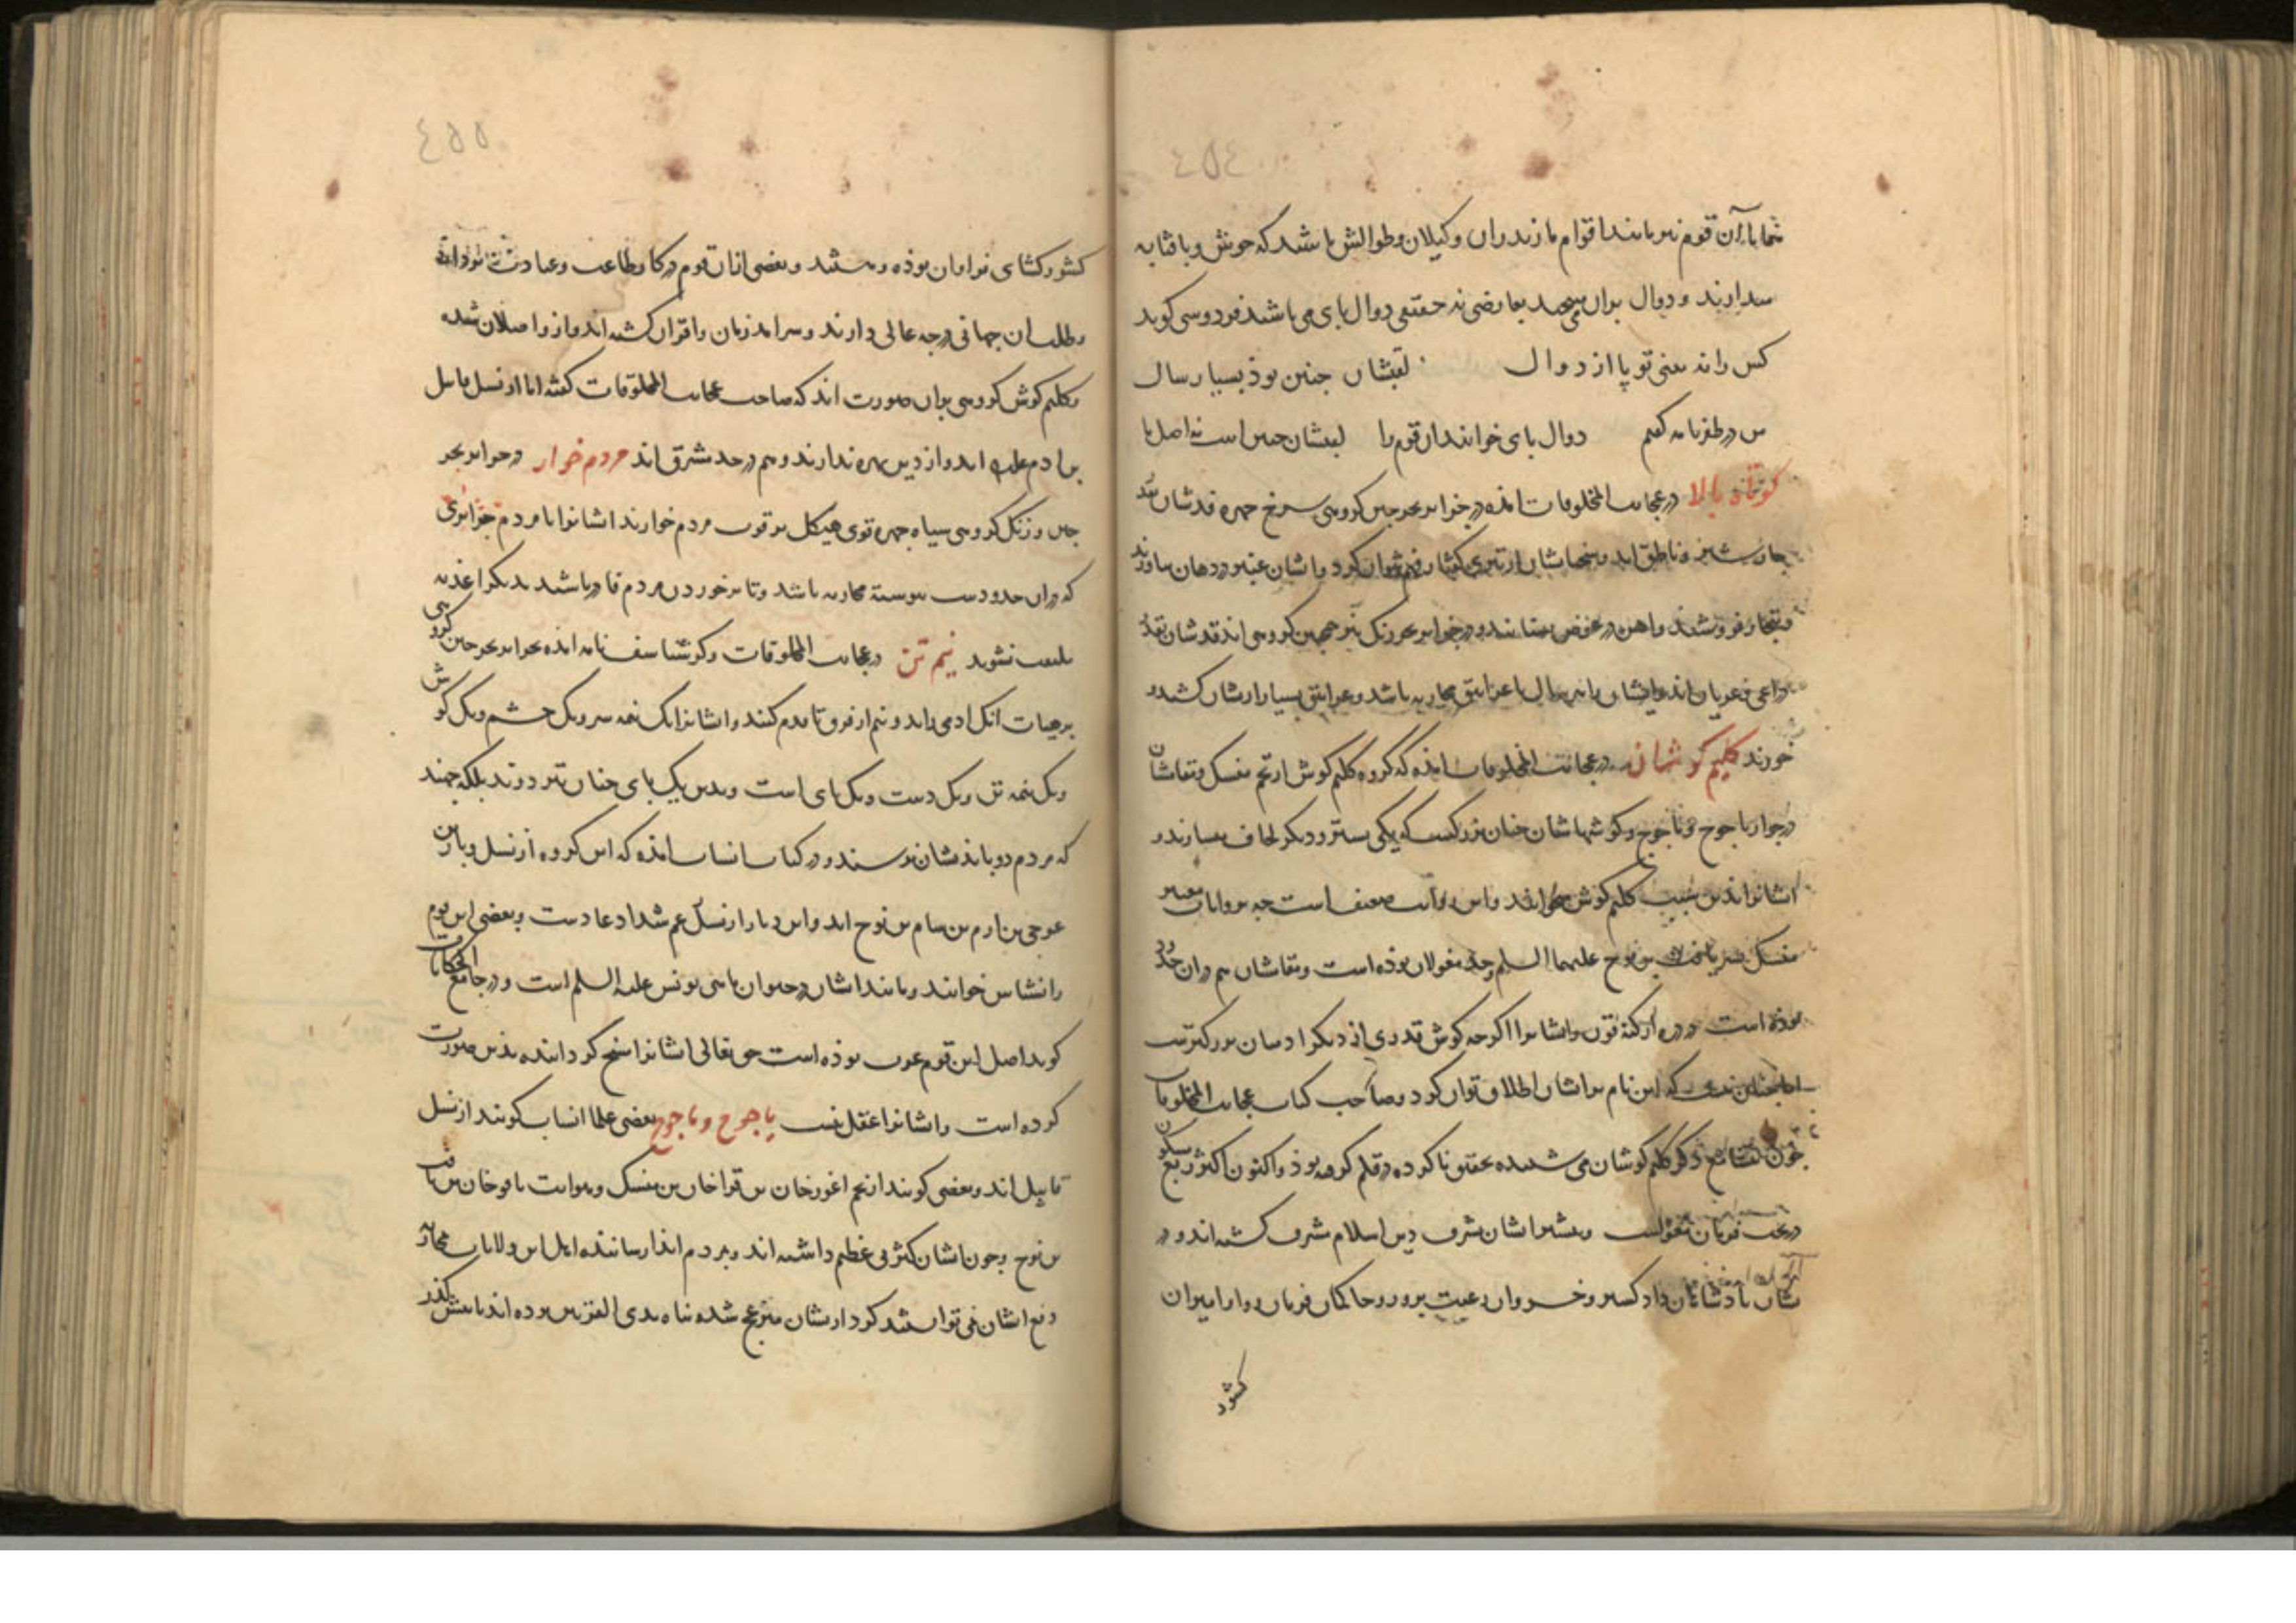 ٤٥٤
شما باآن قوم نیز مانند اقوام مازندران وکیلان وطوالش باشد که
ودوال بران نه حقیقی دوال بای می باشند فردوسی کوید
کس را نه بینی تو پا از دوال لقبشان چنین بوذ بسیار سال
من در ظفرنامه کفتم دوال بای خوانند ان قوم را لقبشان چنین است نه اصل
کوتاه بالا در عجایب المخلوقات امذه در جزایر بحر چین کروهی سرخ چهره قدشان
جهار شبر وناطق اند وسخنهاشان از تیزی کفتار فهم نتوان کرد وایشان عنبر در دهان
وبتجار فروشند واهن در عوض بستانند ودر جزایر بحر زنک نیز همچنین کروهی اند قدشان بقد
ذراعی وعریان اند وایشان را هر سال با غرانیق محاربه باشد وغرانیق بسیار ازیشان کشند و
خورند کلیم کوشان در عجایب المخلوقات امذه که کروه کلیم کوش از تخم منسک ومقاشان
در جوار یاجوج وماجوج وکوشهاشان چنان بزرکست که یکی بستر ودیکر لحاف میسازند و
ایشانرا بذین سبب کلیم کوش خوانند واین روایت ضعیف است چه بروایات معتبر
منسک بن یافث بن نوح علیهما السلم جد مغولان بوذه است ومقاشان هم دران حدود
بوذه است وایشانرا اکرچه کوش قدری از دیکر ادمیان بزرکترست
اما چنان نیست که این نام برایشان اطلاق توان کرد وصاحب کتاب عجایب المخلوقات
چون ذکر کلیم کوشان می شنیده تحقیق ناکرده در قلم کرفته بوذ واکنون اکثر ربع مسکون
در تحت فرمان مغولست وبیشتر ایشان بشرف دین اسلام مشرف کشته اند و در
شان بادشاهان داد کستر وخسروان رعیت برور وحاکمان فرمان روا وامیران
کشور
٤٥٥
کشور کشای فراوان بوذه وهستند وبعضی ازان قوم در کار وطاعت وعبادت
وطلب ان جهانی درجه عالی دارند وسرامد زمان واقران کشته اند واز واصلان شده
وکلیم کوش کروهی بران صورت اند که صاحب عجایب المخلوقات کفته اما از نسل قابیل
بن ادم علیه اند واز دین بهره ندارند وهم در حد مشرق اند مردم خوار در جزایر بحر
چین وزنک کروهی سیاه چهره قوی هیکل مردم خوارند ایشانرا با مردم جزایری
که دران حدودست بیوسته محاربه باشد وتا بر خوردن مردم قادر باشند بدیکر اغذیه
ملتفت نشوند نیم تن در عجایب المخلوقات وکرشاسف نامه امذه بجزایر بحر چین کروهی
بر هیات انک ادمی را بدو نیم از فرق تا قدم کنند وایشانرا یک نیمه سر ویک چشم ویک کوش
ویک نیمه تن ویک دست ویک بای است وبدین یک بای چنان تیز دوند بلکه جهند
که مردم دو بایذیشان نرسند ودر کتاب انساب امذه که این کروه از نسل وبار بن
عوجی بن ارم بن سام بن نوح اند واین وبار از نسل عم شداد عادست وبعضی این قوم
را نسناس خوانند ومانند ایشان در حیوان ماهی یونس علیه السلم است ودر جامع الحکایات
کوید اصل این قوم عرب بوذه است حق تعالی ایشانرا مسخ کردانیده بدین صورت
کرده است وایشانرا عقل نیست یاجوج وماجوج بعضی علما انساب کویند از نسل
قابیل اند وبعضی کویند از تخم اغورخان بن قراخان بن منسک وبروایت باقوخان بن یافث
بن نوح وچون ایشان کثرتی عظیم داشته اند وبمردم ایذا رسانیده اهل این ولایات
دفع ایشان نمی توانستند کرد ازیشان منزعج شده بناه بذی القرنین برده اند